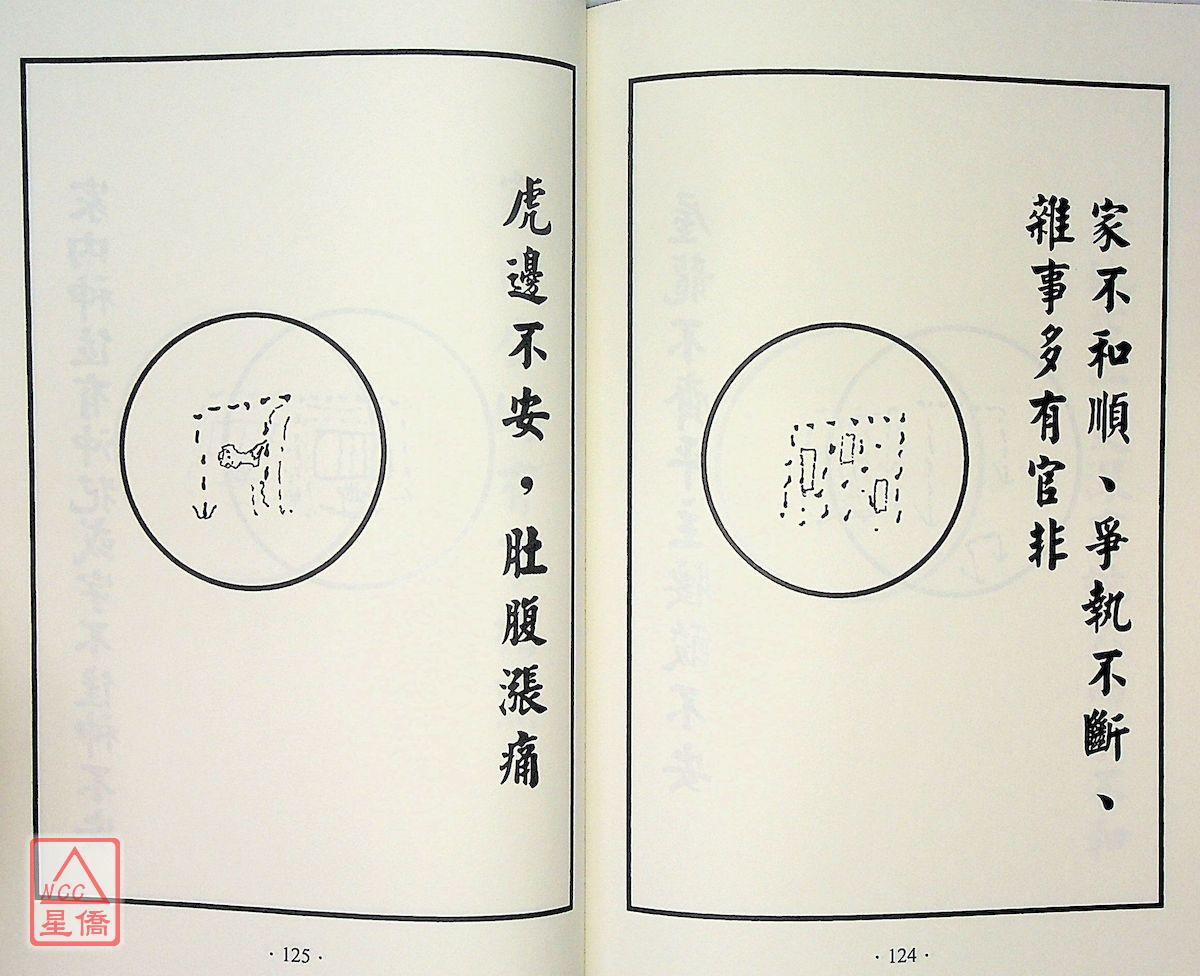 家不和順、爭執不斷、
雜事多有官非
·124·
虎邊不安，肚腹漲痛
·125·
NCC
星僑